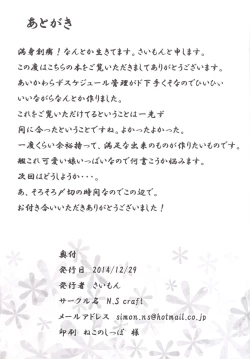 あとがき
満身創痍!なんとか生きてます。さいもんと申します。
この度はこちらの本をご覧いただきましてありがとうございます。
あいかわらずスケジュール管理がド下手くそなのでひいひい
いいながらなんとか作りました。
これをご覧いただけてるということは一先ず
間に合ったということですね。よかったよかった。
一度くらい余裕持って、満足な出来のものが作りたいものです。
艦これ可愛い娘いっぱいなので何書こうか悩みます。
次回はどうしようか・・・。
あ、そろそろ〆切の時間なのでこの辺で。
お付き合いいただきありがとうございました!
奥付
発行日 2014/12/29
発行者 さいもん
サークル名 N.S craft
メールアドレス simon.ns@hotmail.co.jp
印刷 ねこのしっぽ 様